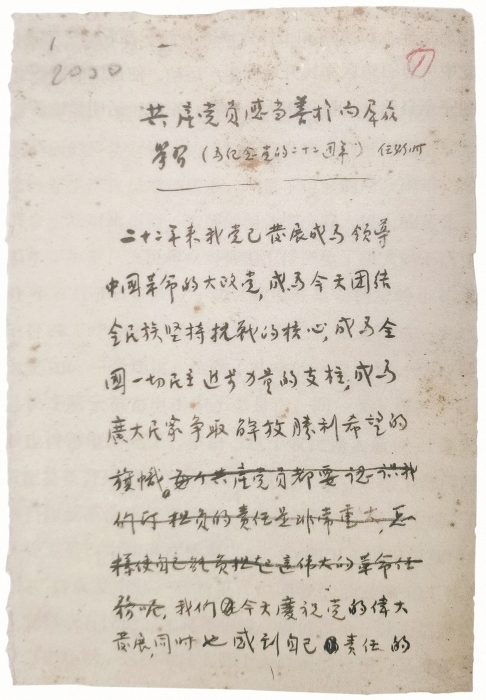 1
2030
①
共產党员应当善於向群众
学习（为纪念党的二十二週年）任弼时
二十二年来我党已發展成為领导
中国革命的大政党，成為今天团结
全民族坚持抗战的核心，成為全
国一切民主进步力量的支柱，成為
廣大民众争取解放勝利希望的
旗帜。每个共產党员都要认识我
们所担负的责任是非常重大，怎
样使自己能负担起这伟大的革命任
務呢，我们在今天慶祝党的偉大
發展，同时也感到自己责任的